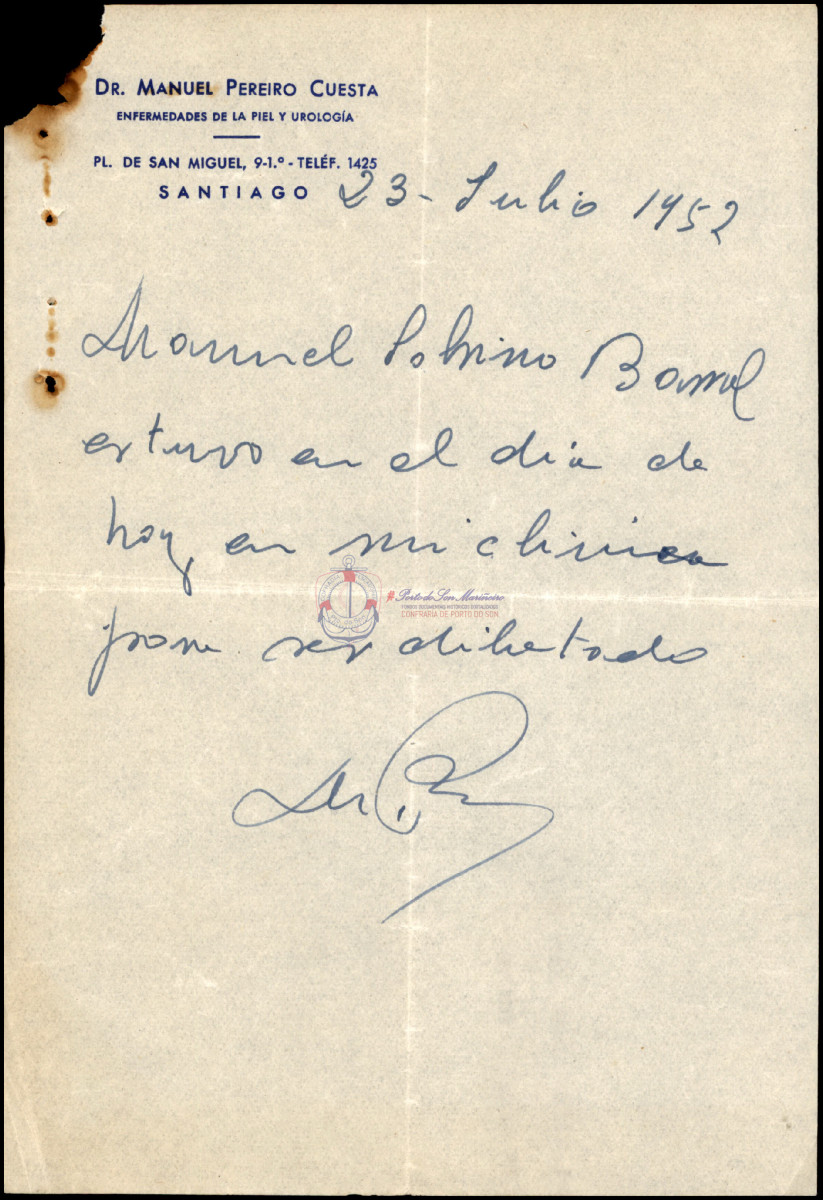 DR. MANUEL PEREIRO CUESTA
ENFERMEDADES DE LA PIEL Y UROLOGÍA
PL. DE SAN MIGUEL, 9-1.º - TELÉF. 1425
SANTIAGO
23 - Julio 1952
Manuel Sobrino Barral
estuvo en el dia de
hoy, en mi clinica
para ser dilatado
Porto do Son Mariñeiro
FONDOS DOCUMENTAIS HISTÓRICOS DIXITALIZADOS
CONFRARÍA DE PORTO DO SON
Dr. P